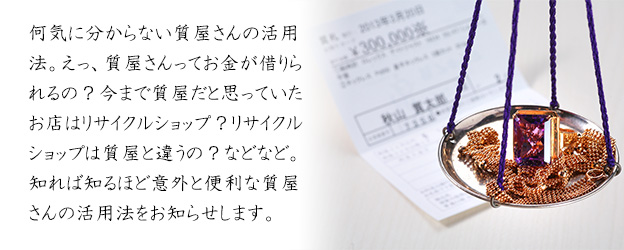 何気に分からない質屋さんの活用
法。えっ、質屋さんってお金が借りら
れるの?今まで質屋だと思っていた
お店はリサイクルショップ?リサイクル
ショップは質屋と違うの?などなど。
知れば知るほど意外と便利な質屋
さんの活用法をお知らせします。
2013年2月20日
¥300,000※
秋山 賢太郎